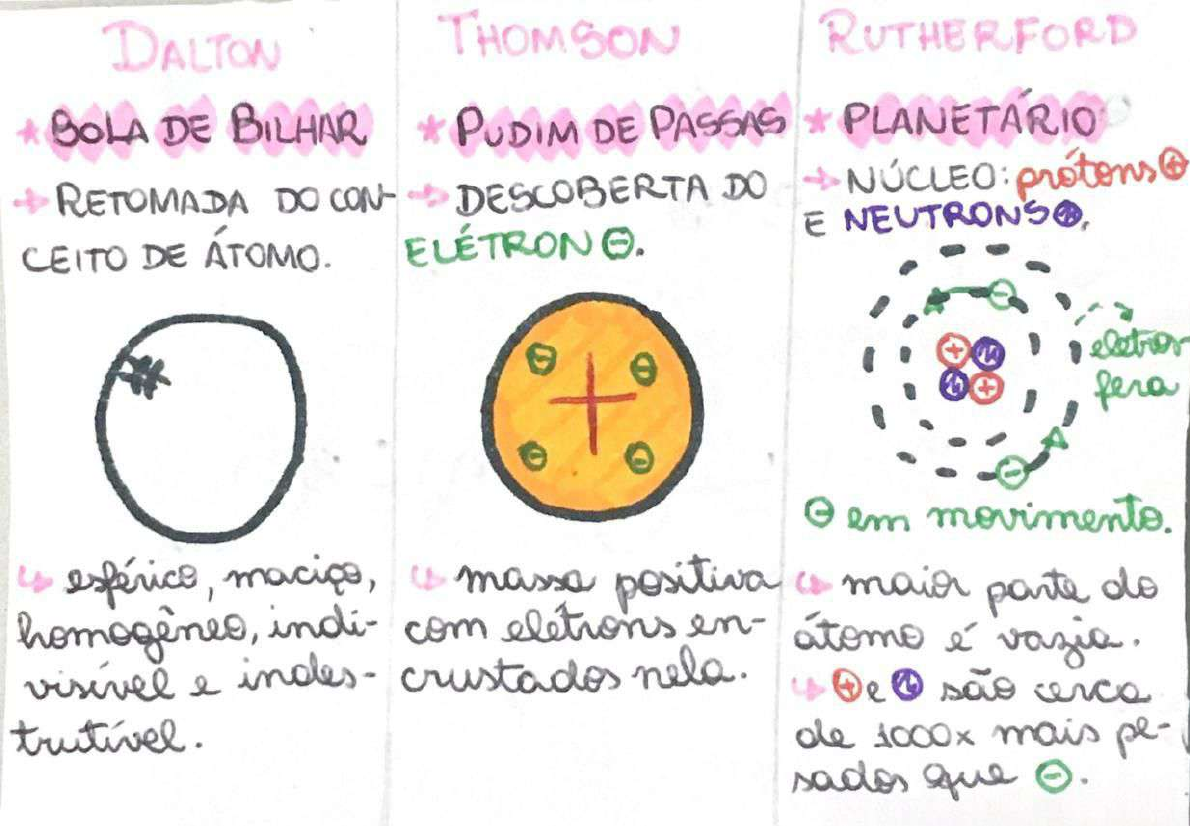 DALTON
* BOLA DE BILHAR
→ RETOMADA DO CON-
CEITO DE ÁTOMO.
↳ esférico, maciço,
homogêneo, indi-
visível e indes-
trutível.
THOMSON
* PUDIM DE PASSAS
→ DESCOBERTA DO
ELÉTRON ⊖.
⊖ ⊖
+
⊖ ⊖
↳ massa positiva
com elétrons en-
crustados nela.
RUTHERFORD
* PLANETÁRIO
→ NÚCLEO: prótons ⊕
E NEUTRONS Ⓝ.
⊖
+ N
N +
eletros
fera
⊖
⊖ em movimento.
↳ maior parte do
átomo é vazia.
↳ ⊕ e Ⓝ são cerca
de 1000x mais pe-
sados que ⊖.